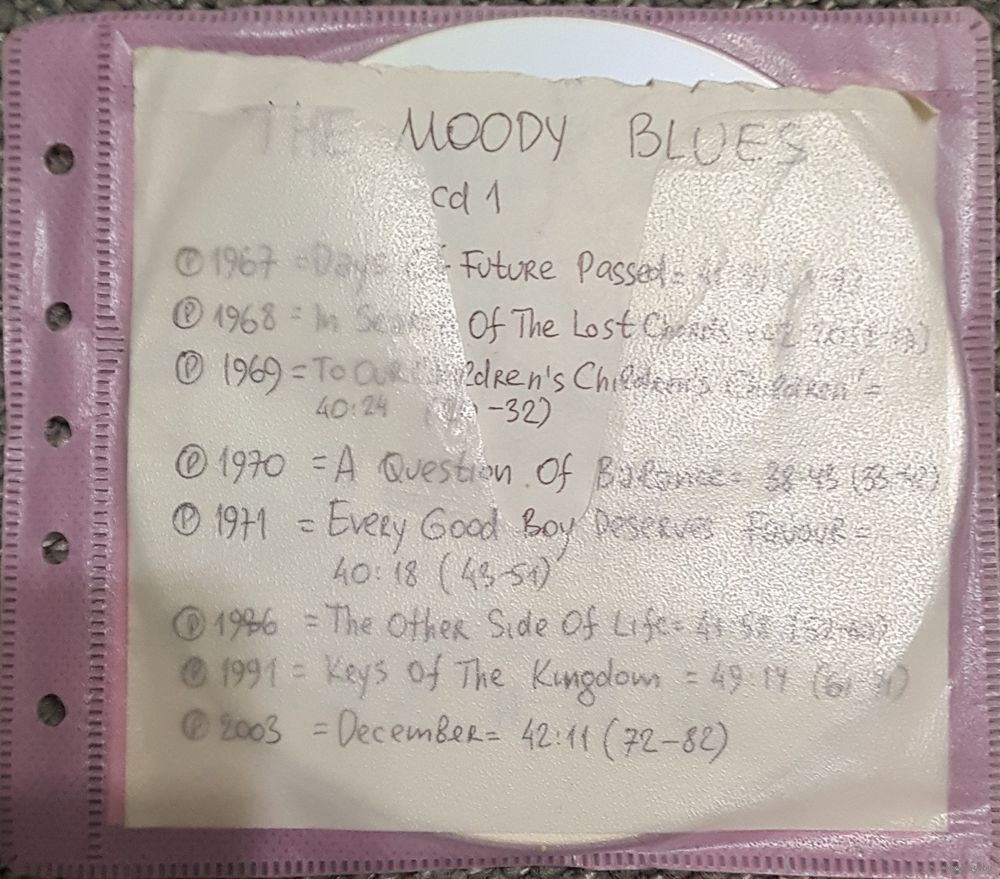 THE MOODY BLUES
cd 1
Ⓟ 1967 = Days Of Future Passed =
Ⓟ 1968 = In Search Of The Lost Chords =
Ⓟ 1969 = To Our Children's Children's Children =
40:24 ( -32)
Ⓟ 1970 = A Question Of Balance = 38:43 (33-42)
Ⓟ 1971 = Every Good Boy Deserves Favour =
40:18 (43-51)
Ⓟ 1986 = The Other Side Of Life =
Ⓟ 1991 = Keys Of The Kingdom = 49:14
Ⓟ 2003 = December = 42:11 (72-82)